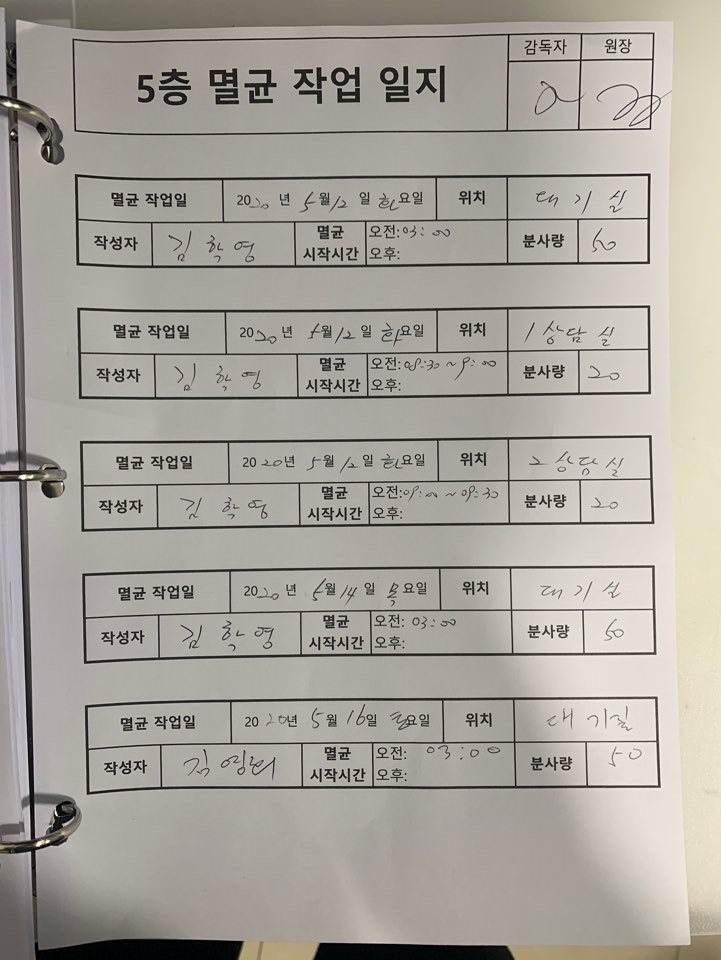 감독자 원장
5층 멸균 작업 일지
멸균 작업일 2020년 5월 12일 화요일 위치 대기실
작성자 김학영 멸균 시작시간 오전: 03:00 분사량 50
오후:
멸균 작업일 2020년 5월 12일 화요일 위치 1상담실
작성자 김학영 멸균 시작시간 오전: 08:30 ~ 9:00 분사량 20
오후:
멸균 작업일 2020년 5월 12일 화요일 위치 2상담실
작성자 김학영 멸균 시작시간 오전: 09:00 ~ 09:30 분사량 20
오후:
멸균 작업일 2020년 5월 14일 목요일 위치 대기실
작성자 김학영 멸균 시작시간 오전: 03:00 분사량 50
오후:
멸균 작업일 2020년 5월 16일 토요일 위치 대기실
작성자 김 멸균 시작시간 오전: 03:00 분사량 50
오후: